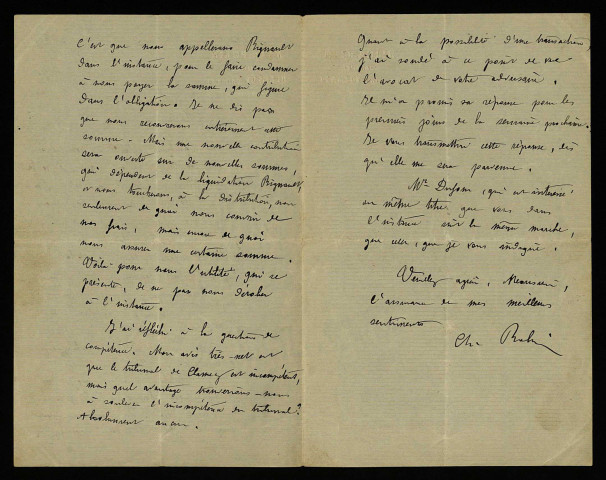 C'est que nous appellerons Bignault
dans l'instance, pour le faire condamner
à nous payer la somme, qui figure
dans l'obligation. Je ne dis pas
que nous recouvrerons entièrement cette
somme. Mais une nouvelle contribution
sera ouverte sur de nouvelles sommes,
qui dépendent de la liquidation Bignault
et nous trouverons, à la distribution, non
seulement de quoi nous couvrir de
nos frais, mais encore de quoi
nous assurer une certaine somme.
Voilà pour nous l'utilité, qui se
présente, de ne pas nous dérober
à l'instance.
J'ai réfléchi à la question de
compétence. Mon avis très-net est
que le tribunal de Clamecy est incompétent,
mais quel avantage trouverions-nous
à soulever l'incompétence du tribunal?
Absolument aucun.
Quant à la possibilité d'une transaction,
j'ai soulé à ce point de vue
l'avocat de votre adversaire.
Il m'a promis sa réponse pour les
premiers jours de la semaine prochaine.
Je vous transmettrai cette réponse, dès
qu'elle me sera parvenue.
Mr (qui est intéressé
au même titre que vous dans
l'instance suit la même marche,
que celle, que je vous indique.
Veuillez agréer, Monsieur,
l'assurance de mes meilleurs
sentiments
Ch.